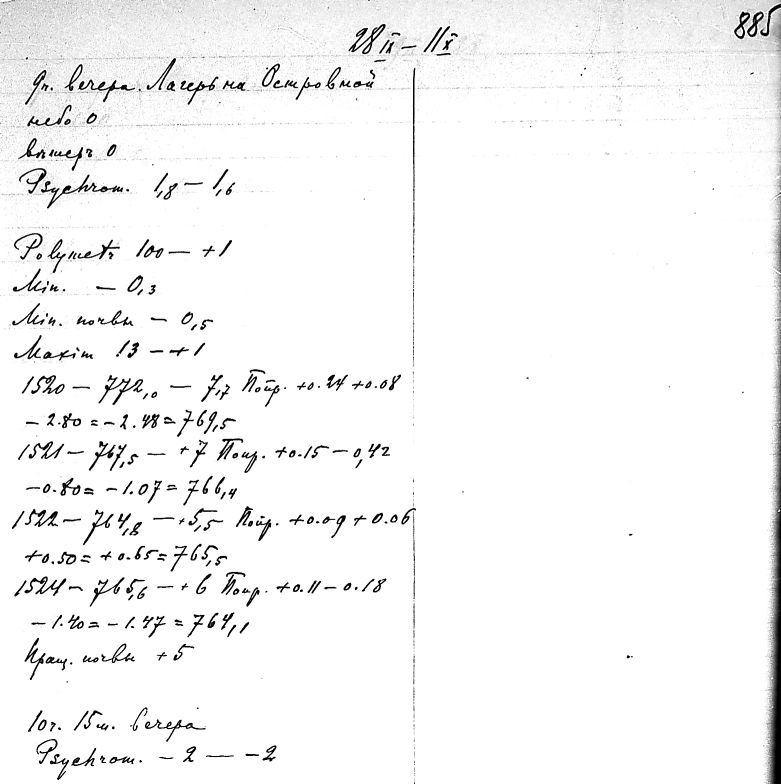 885
28 IX – 11 X
9 ч. вечера. Лагерь на Островной
небо 0
вѣтеръ 0
Psychrom. 1,8 – 1,6
Polymetr 100 – +1
Min. – 0,3
Min. почвы – 0,5
Maxim 13 – +1
1520 – 772,0 – 7,7 Попр. +0.24 +0.08
– 2.80 = – 2.48 = 769,5
1521 – 767,5 – +7 Попр. +0.15 – 0,42
– 0.80 = – 1.07 = 766,4
1522 – 764,8 – +5,5 Попр. +0.09 + 0.06
+0.50 = +0.65 = 765,5
1524 – 765,6 – +6 Попр. +0.11 – 0.18
– 1.40 = – 1.47 = 764,1
Пращ. почвы +5
10 ч. 15 м. вечера
Psychrom. – 2 — –2